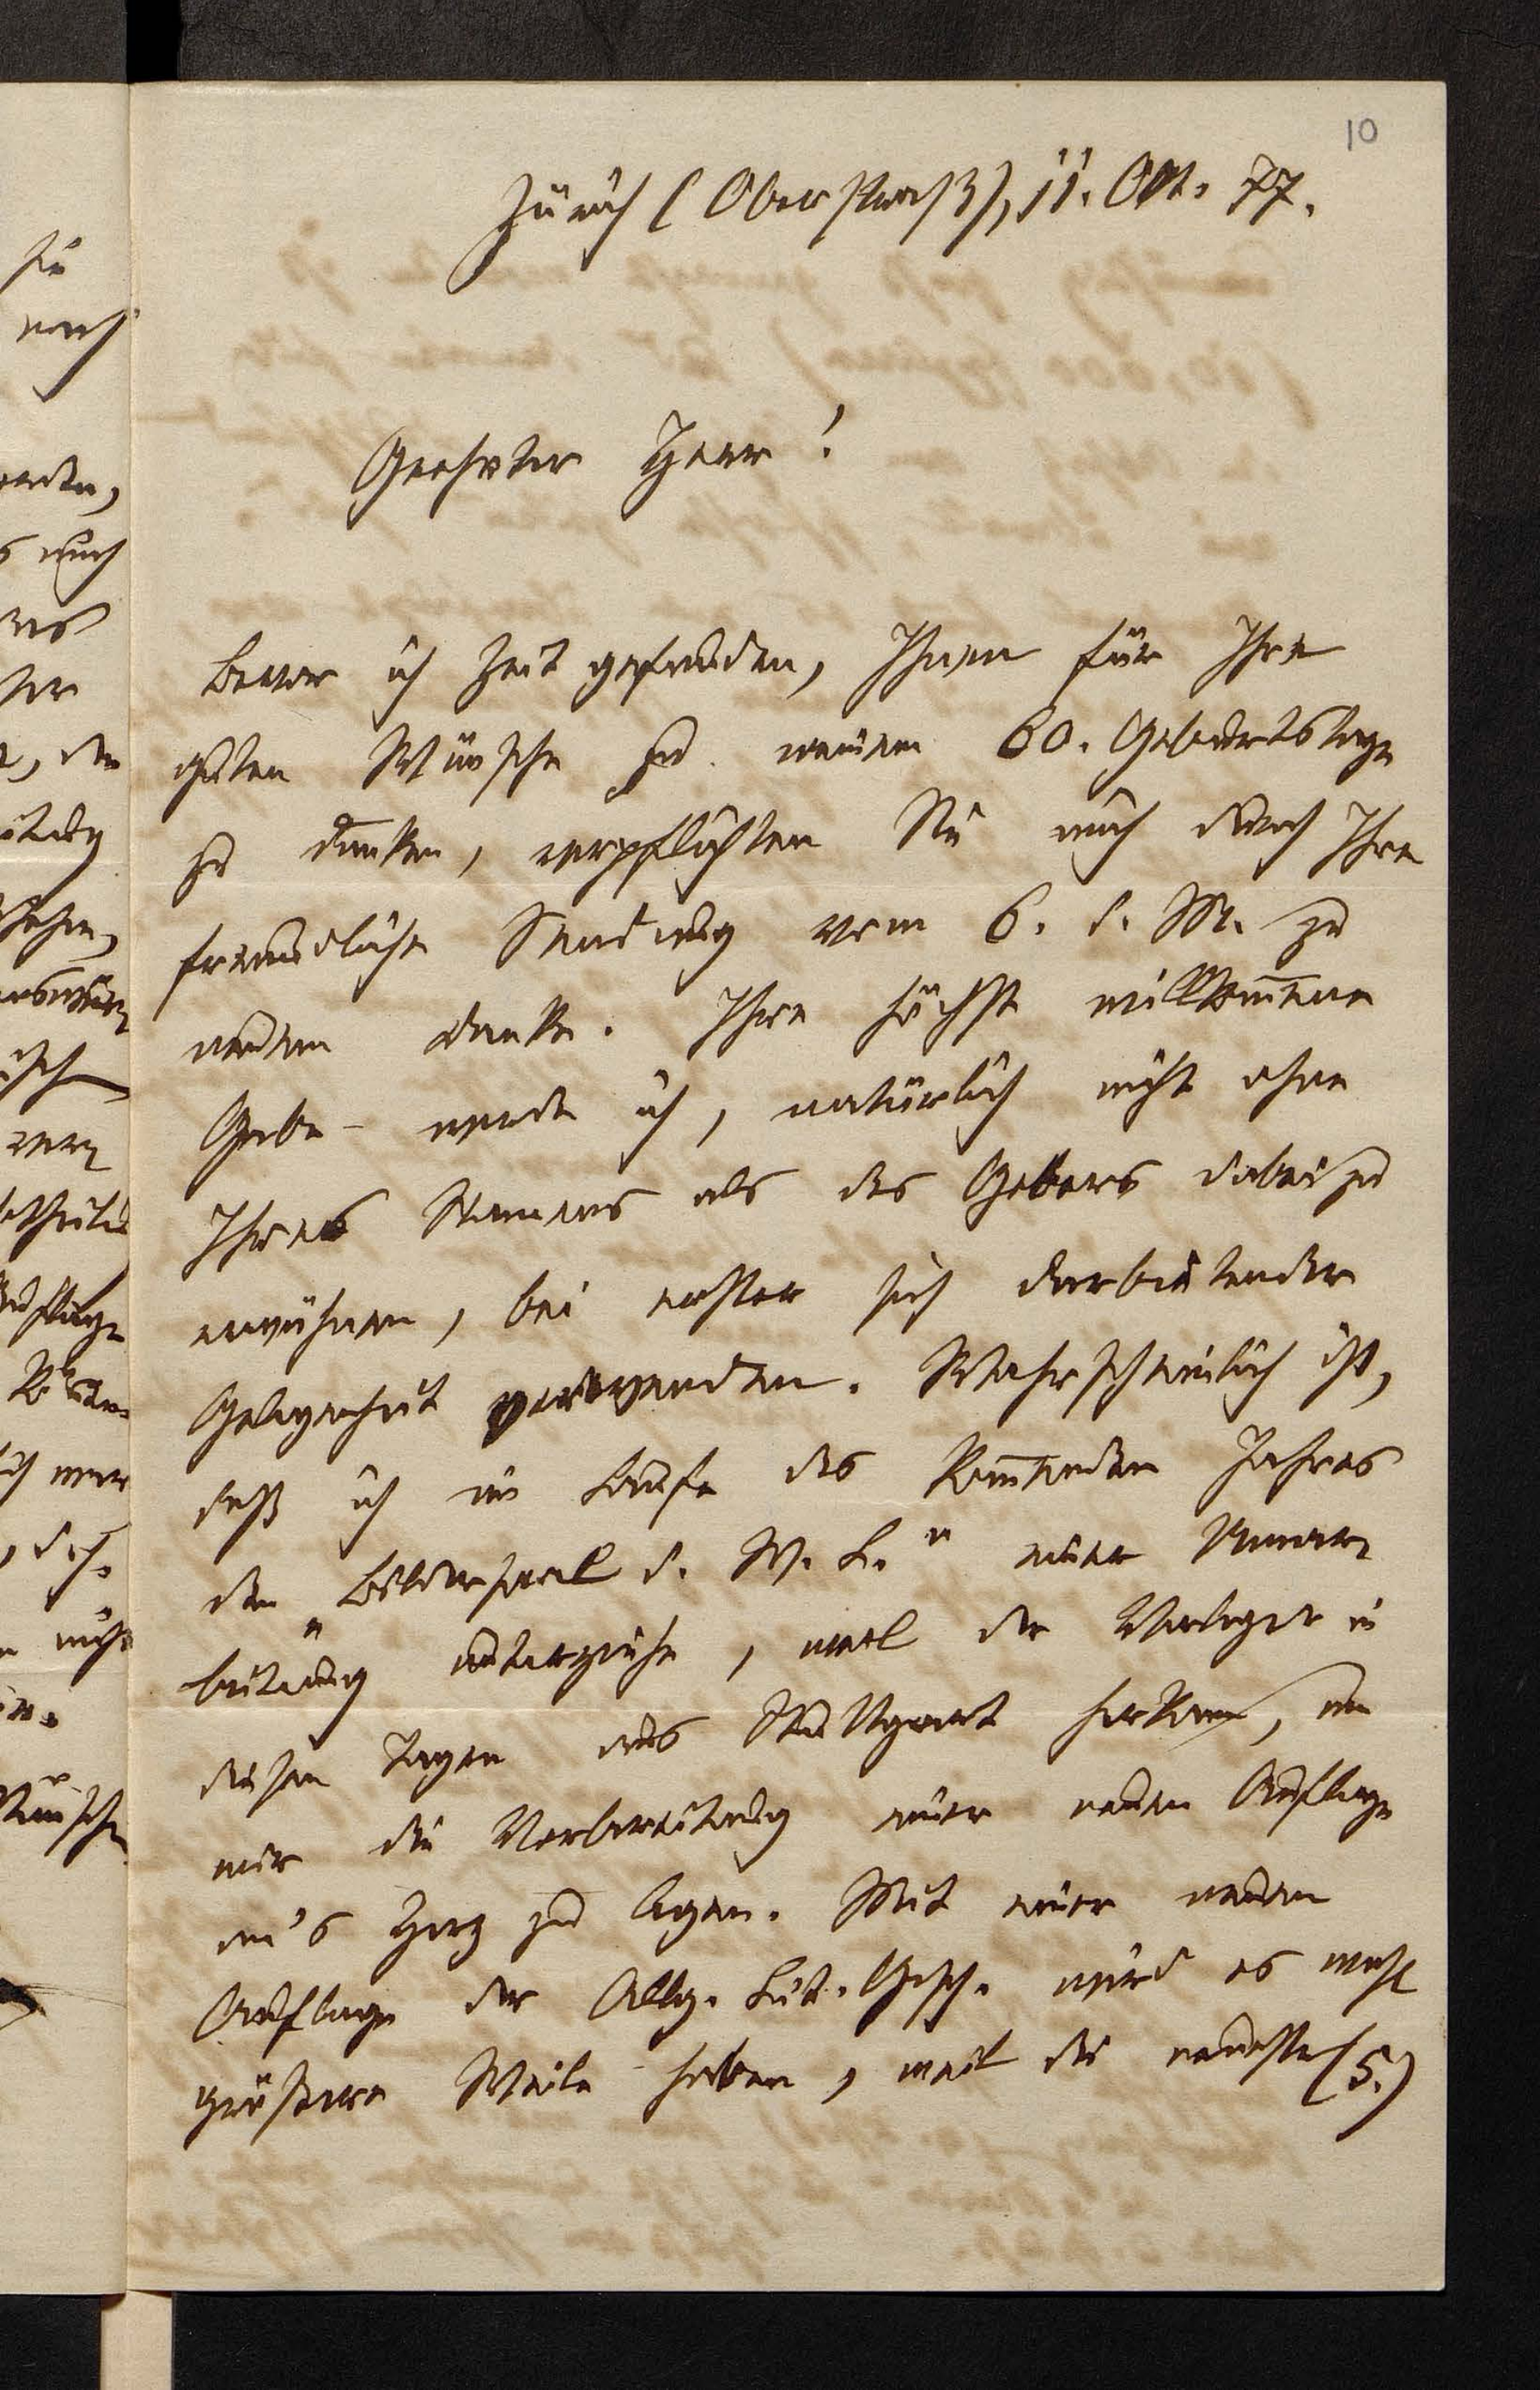 10
Zürich (Oberstraß), 11. Okt. 77.
Geehrter Herr!
Bevor ich Zeit gefunden, Ihnen für Ihre
guten Wünsche zu meinem 60. Geburtstage
zu danken, verpflichten Sie mich durch Ihre
freundliche Sendung vom 6. d. M. zu
neuem Danke. Ihre höchst willkom̅ene
Gabe werde ich, natürlich nicht ohne
Ihres Namens als des Gebers dabei zu
erwähnen, bei erster sich darbietender
Gelegenheit verwenden. Wahrscheinlich ist,
daß ich im Laufe des kom̅enden Jahres
den „Bildersaal d. W. L." einer Umar-
beitung unterziehe, weil der Verleger in
diesen Tagen aus Stuttgart herkam, um
mir die Vorbereitung einer neuen Auflage
an's Herz zu legen. Mit einer neuen
Auflage der Allg. Lit. Gesch. wird es wohl
größere Weile haben, weil die neueste (5.)